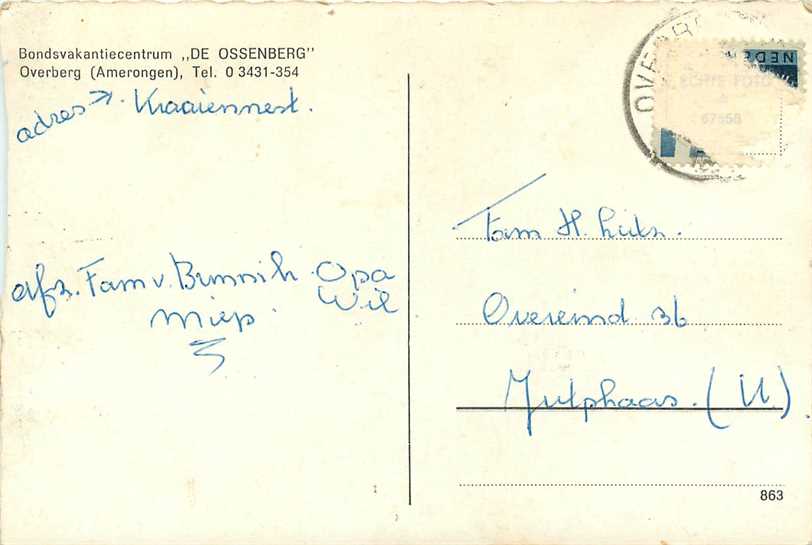 Bondsvakantiecentrum „DE OSSENBERG"
Overberg (Amerongen), Tel. 0 3431-354
adres → Kraaiennest.
afz. Fam v. Bennik. Opa
Miep. Wil
OVERB
NED
ECHTE FOTO
67558
Fam H. Luten.
Overeind 36
Jutphaas. (U.)
863